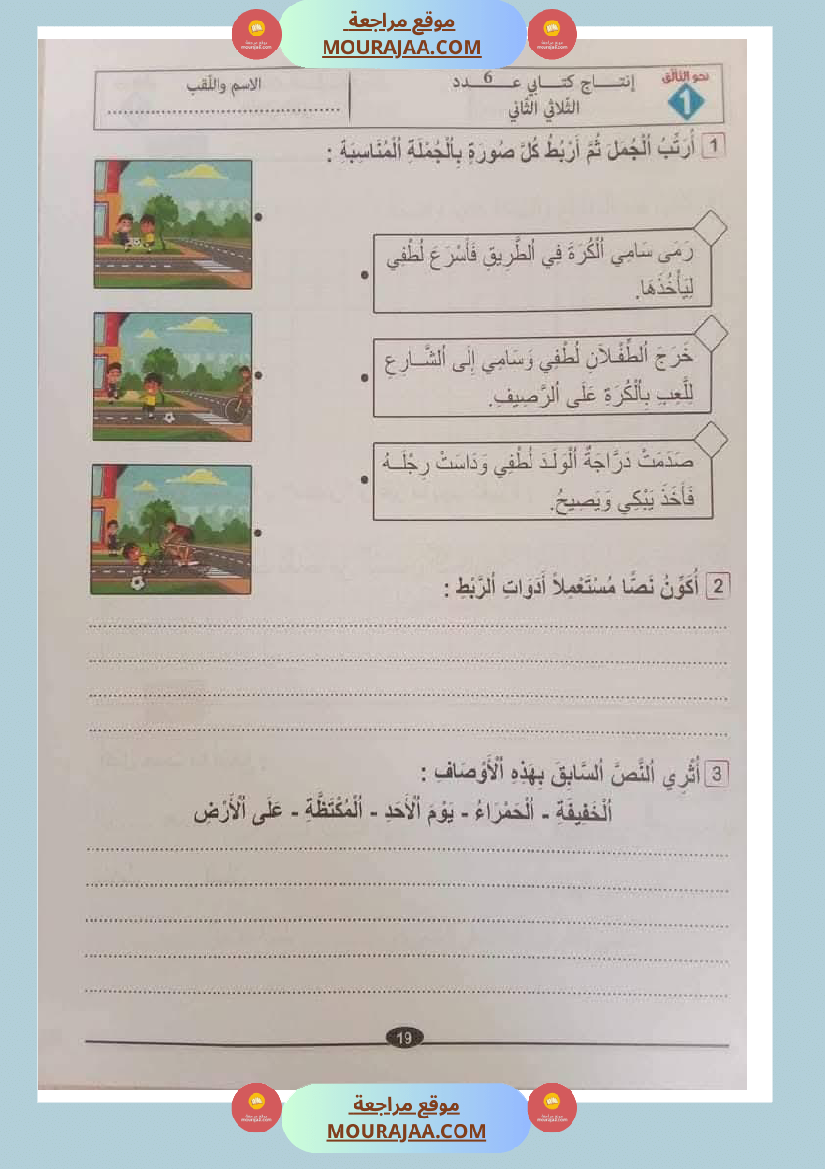 موقع مراجعة
MOURAJAA.COM
نحو التألق
1
إنتـــاج كتـــابي عـــ6ـــدد
الثّلاثي الثّاني
الاسم واللّقب
1 أُرَتِّبُ ٱلْجُمَلَ ثُمَّ أَرْبُطُ كُلَّ صُورَةٍ بِٱلْجُمْلَةِ ٱلْمُنَاسِبَة :
رَمَى سَامِي ٱلْكُرَةَ فِي ٱلطَّرِيقِ فَأَسْرَعَ لُطْفِي
لِيَأْخُذَهَا.
خَرَجَ ٱلطِّفْـلَانِ لُطْفِي وَسَامِي إِلَى ٱلشَّـــارِعِ
لِلَّعِبِ بِٱلْكُرَةِ عَلَى ٱلرَّصِيفِ.
صَدَمَتْ دَرَّاجَةٌ ٱلْوَلَـدَ لُطْفِي وَدَاسَتْ رِجْلَــهُ
فَأَخَذَ يَبْكِي وَيَصِيحُ.
2 أُكَوِّنُ نَصًّا مُسْتَعْمِلاً أَدَوَاتِ ٱلرَّبْطِ :
3 أُثْرِي ٱلنَّصَّ ٱلسَّابِقَ بِهَذِهِ ٱلْأَوْصَافِ :
ٱلْخَفِيفَةِ - ٱلْحَمْرَاءُ - يَوْمَ ٱلْأَحَدِ - ٱلْمُكْتَظَّةِ - عَلَى ٱلْأَرْضِ
19
موقع مراجعة
MOURAJAA.COM